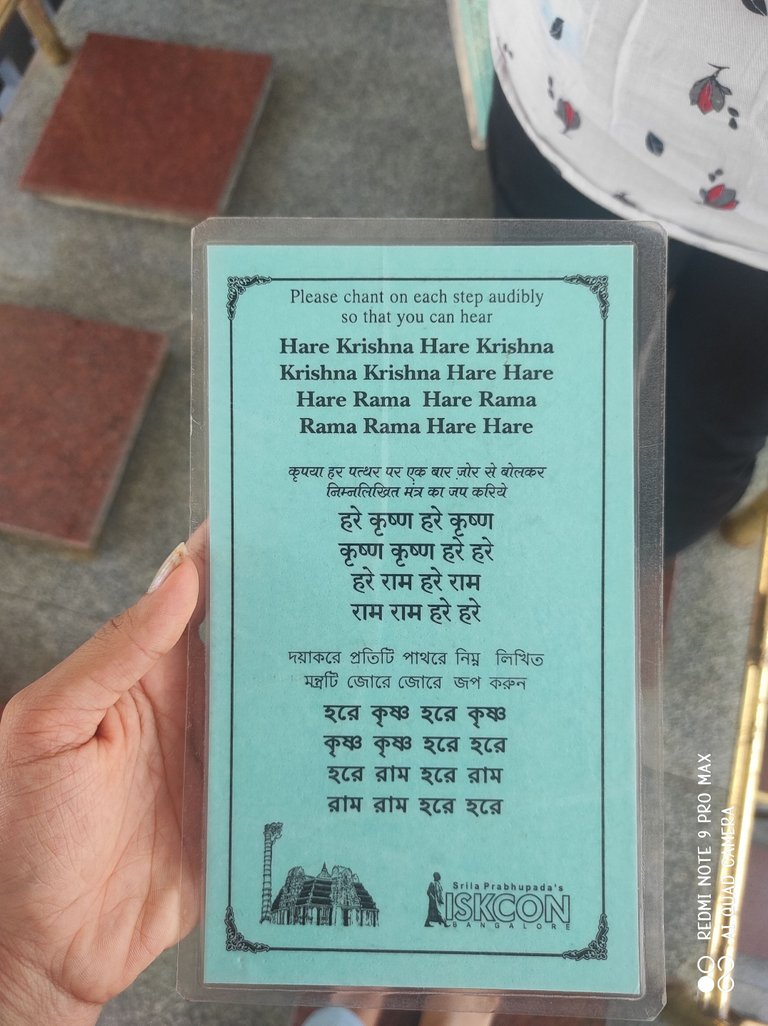 Please chant on each step audibly
so that you can hear
Hare Krishna Hare Krishna
Krishna Krishna Hare Hare
Hare Rama Hare Rama
Rama Rama Hare Hare
कृपया हर पत्थर पर एक बार ज़ोर से बोलकर
निम्नलिखित मंत्र का जप करिये
हरे कृष्ण हरे कृष्ण
कृष्ण कृष्ण हरे हरे
हरे राम हरे राम
राम राम हरे हरे
দয়াকরে প্রতিটি পাথরে নিম্ন লিখিত
মন্ত্রটি জোরে জোরে জপ করুন
হরে কৃষ্ণ হরে কৃষ্ণ
কৃষ্ণ কৃষ্ণ হরে হরে
হরে রাম হরে রাম
রাম রাম হরে হরে
Srila Prabhupada's
ISKCON
BANGALORE
REDMI NOTE 9 PRO MAX
AI QUAD CAMERA